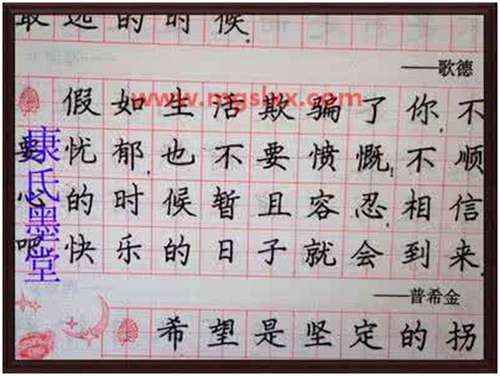 最远的时候.
——歌德
假如生活欺骗了你,不
要忧郁,也不要愤慨.不顺
心的时候暂且容忍,相信
吧,快乐的日子就会到来.
——普希金
希望是坚定的拐
康氏墨堂